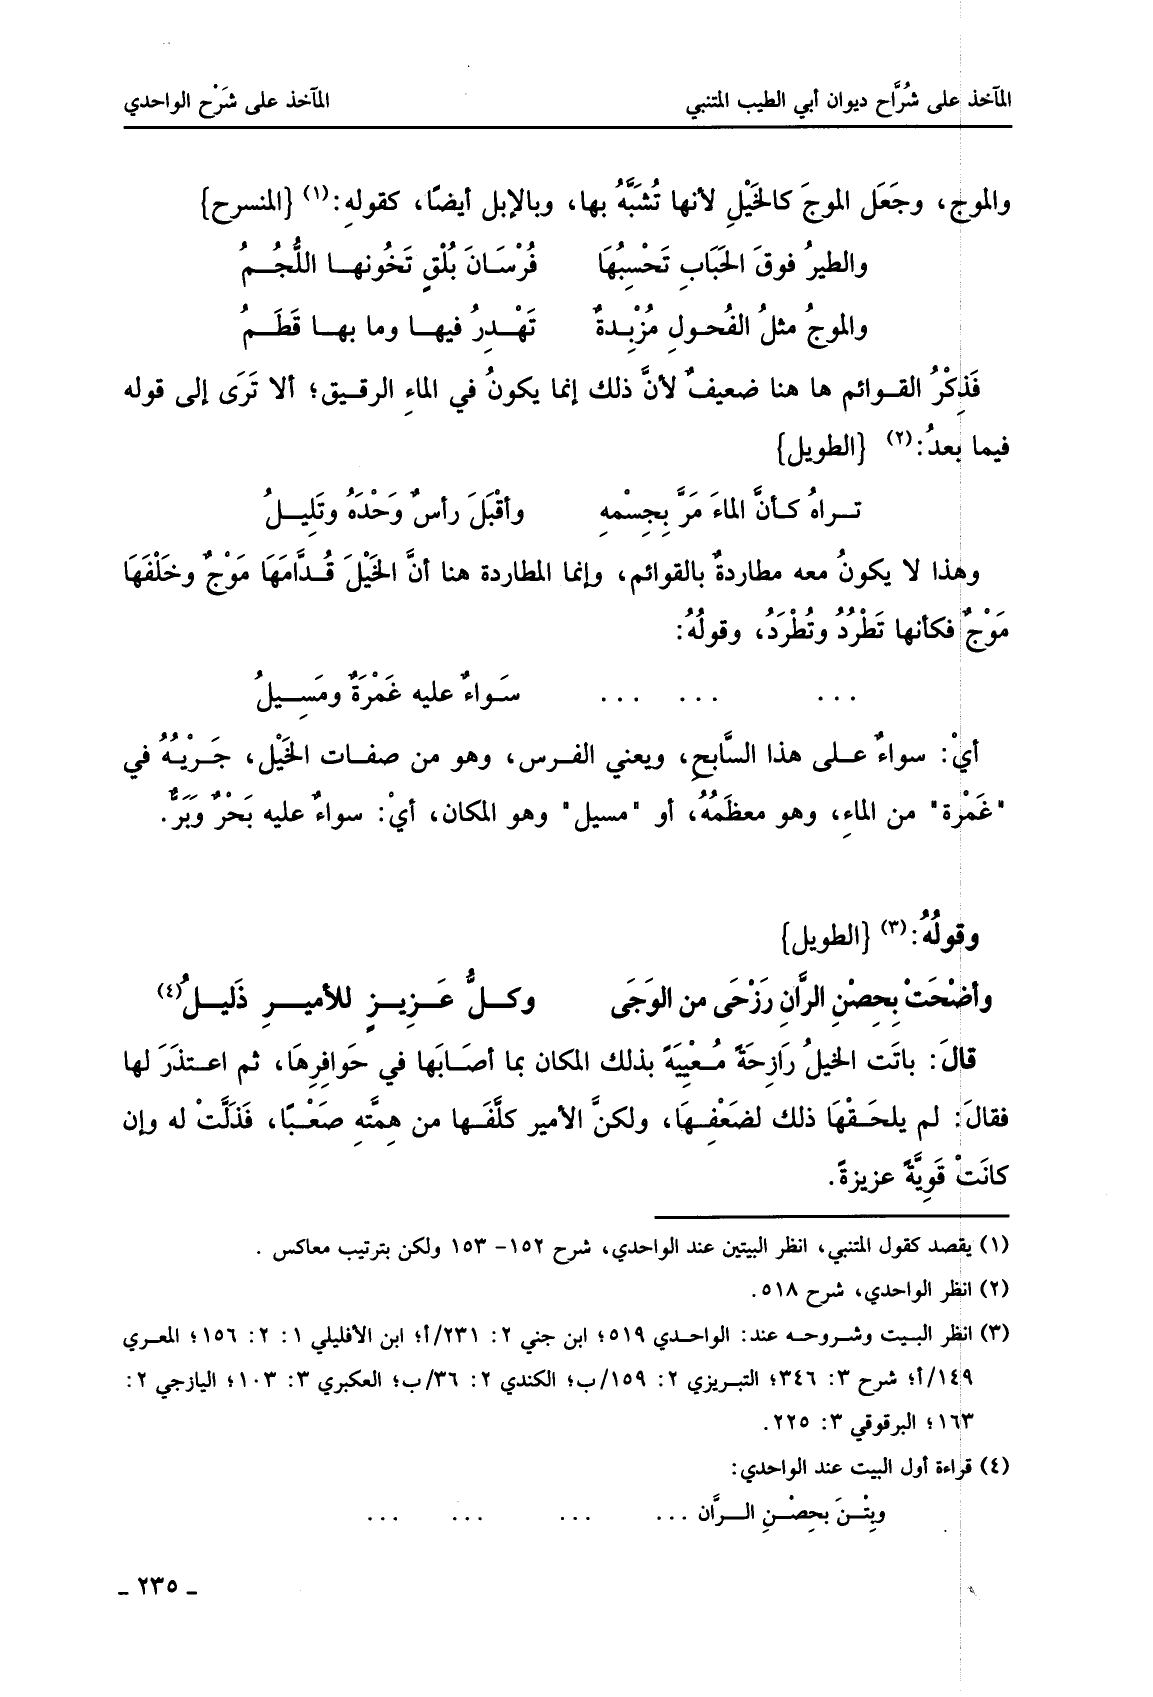 المآخذ على شُرَّاح ديوان أبي الطيب المتنبي المآخذ على شَرْح الواحدي
والموج، وجَعَل الموجَ كالخَيْلِ لأنها تُشَبَّهُ بها، وبالإبل أيضًا، كقولهِ:(١) {المنسرح}
والطيرُ فوقَ الحَبَابِ تَحْسِبُهَا فُرْسَـانَ بُلْقٍ تَخُونهـا اللُّجُـمُ
والموجُ مثلُ الفُحـولِ مُزْبِـدةٌ تَهْـدِرُ فيهـا وما بهـا قَطَـمُ
فَذِكْرُ القـوائم ها هنا ضعيفٌ لأنَّ ذلك إنما يكونُ في الماءِ الرقيـق؛ ألا تَرَى إلى قوله
فيما بعدُ:(٢) {الطويل}
تـراهُ كـأنَّ الماءَ مَرَّ بِجِسْمهِ وأقْبَلَ رأسٌ وَحْدَهُ وتَلِيـلُ
وهذا لا يكونُ معه مطاردةٌ بالقوائم، وإنما المطاردة هنا أنَّ الخَيْلَ قُـدَّامَهَا مَوْجٌ وخَلْفَهَا
مَوْجٌ فكأنها تَطْرُدُ وتُطْرَدُ، وقولُهُ:
... ... ... سَـواءٌ عليه غَمْرَةٌ ومَسِـيلُ
أيْ: سواءٌ علـى هذا السَّابحِ، ويعني الفـرس، وهو من صفـات الخَيْل، جَـرْيُـهُ في
"غَمْرة" من الماءِ، وهو معظَمُهُ، أو "مسيل" وهو المكان، أيْ: سواءٌ عليه بَحْرٌ وَبَرٌّ.
وقولُهُ:(٣) {الطويل}
وأضْحَتْ بِحِصْنِ الرَّانِ رَزْحَى من الوَجَى وكـلُّ عَـزِيـزٍ للأميـرِ ذَليـلُ(٤)
قالَ: باتَت الخيلُ رَازِحَةً مُـعْيِيَةً بذلك المكان بما أصَـابَها في حَوافِرِهَا، ثم اعـتذَرَ لها
فقالَ: لم يلحَـقْهَا ذلك لضَعْفِـهَا، ولكنَّ الأمير كلَّفَـها من هِمَّتهِ صَعْـبًا، فَذَلَّتْ له وإن
كانَتْ قَوِيَّةً عزيزةً.
(١) يقصد كقول المتنبي، انظر البيتين عند الواحدي، شرح ١٥٢- ١٥٣ ولكن بترتيب معاكس .
(٢) انظر الواحدي، شرح ٥١٨.
(٣) انظر البيت وشروحـه عند: الواحـدي ٥١٩؛ ابن جني ٢: ٢٣١/أ؛ ابن الأفليلي ١: ٢: ١٥٦؛ المعري
١٤٩/أ؛ شرح ٣: ٣٤٦؛ التبـريزي ٢: ١٥٩/ب؛ الكندي ٢: ٣٦/ب؛ العكبري ٣: ١٠٣؛ اليازجي ٢:
١٦٣؛ البرقوقي ٣: ٢٢٥.
(٤) قراءة أول البيت عند الواحدي:
وبِتْـنَ بحِصْـنِ الـرَّان ... ... ... ... ...
ـ ٢٣٥ ـ